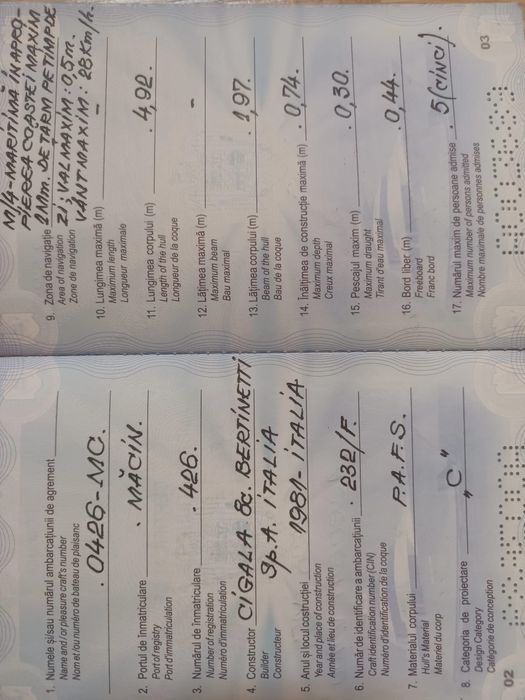 1. Numele şi/sau numărul ambarcaţiunii de agrement
Name and / or pleasure craft's number
Nom et / ou numéro de bateau de plaisanc
. 0426-MC.
2. Portul de înmatriculare . MĂCIN.
Port of registry
Port d'immatriculation
3. Numărul de înmatriculare . 426.
Number of registration
Numéro d'immatriculation
4. Constructor CIGALA & BERTINETTI
Builder
Constructeur
Sp.A. ITALIA
5. Anul şi locul costrucţiei 1981-ITALIA
Year and place of construction
Année et lieu de construction
6. Număr de identificare a ambarcaţiunii . 232/F.
Craft identification number (CIN)
Numéro d'identification de la coque
7. Materialul corpului P.A.F.S.
Hull's Material
Materiel du corp
8. Categoria de proiectare „C"
Design Category
Catégorie de conception
02
M/4-MARITIMĂ ÎN APRO-
PIEREA COASTEI MAXIM
2Mm. DE ȚĂRM PE TIMP DE
9. Zona de navigaţie ZI; VAL MAXIM: 0,5m.
Area of navigation
Zone de navigation
VÂNT MAXIM: 28Km/h.
10. Lungimea maximă (m) -
Maximum length
Longueur maximale
11. Lungimea corpului (m) . 4,92.
Length of the hull
Longueur de la coque
12. Lăţimea maximă (m) -
Maximum beam
Bau maximal
13. Lăţimea corpului (m) . 1,97.
Beam of the hull
Bau de la coque
14. Înălţimea de construcţie maximă (m) . 0,74.
Maximum depth
Creux maximal
15. Pescajul maxim (m) . 0,30.
Maximum draught
Tirant d'eau maximal
16. Bord liber (m) . 0,44.
Freeboard
Franc bord
17. Numărul maxim de persoane admise . 5 (cinci).
Maximum number of persons admitted
Nombre maximale de personnes admises
03